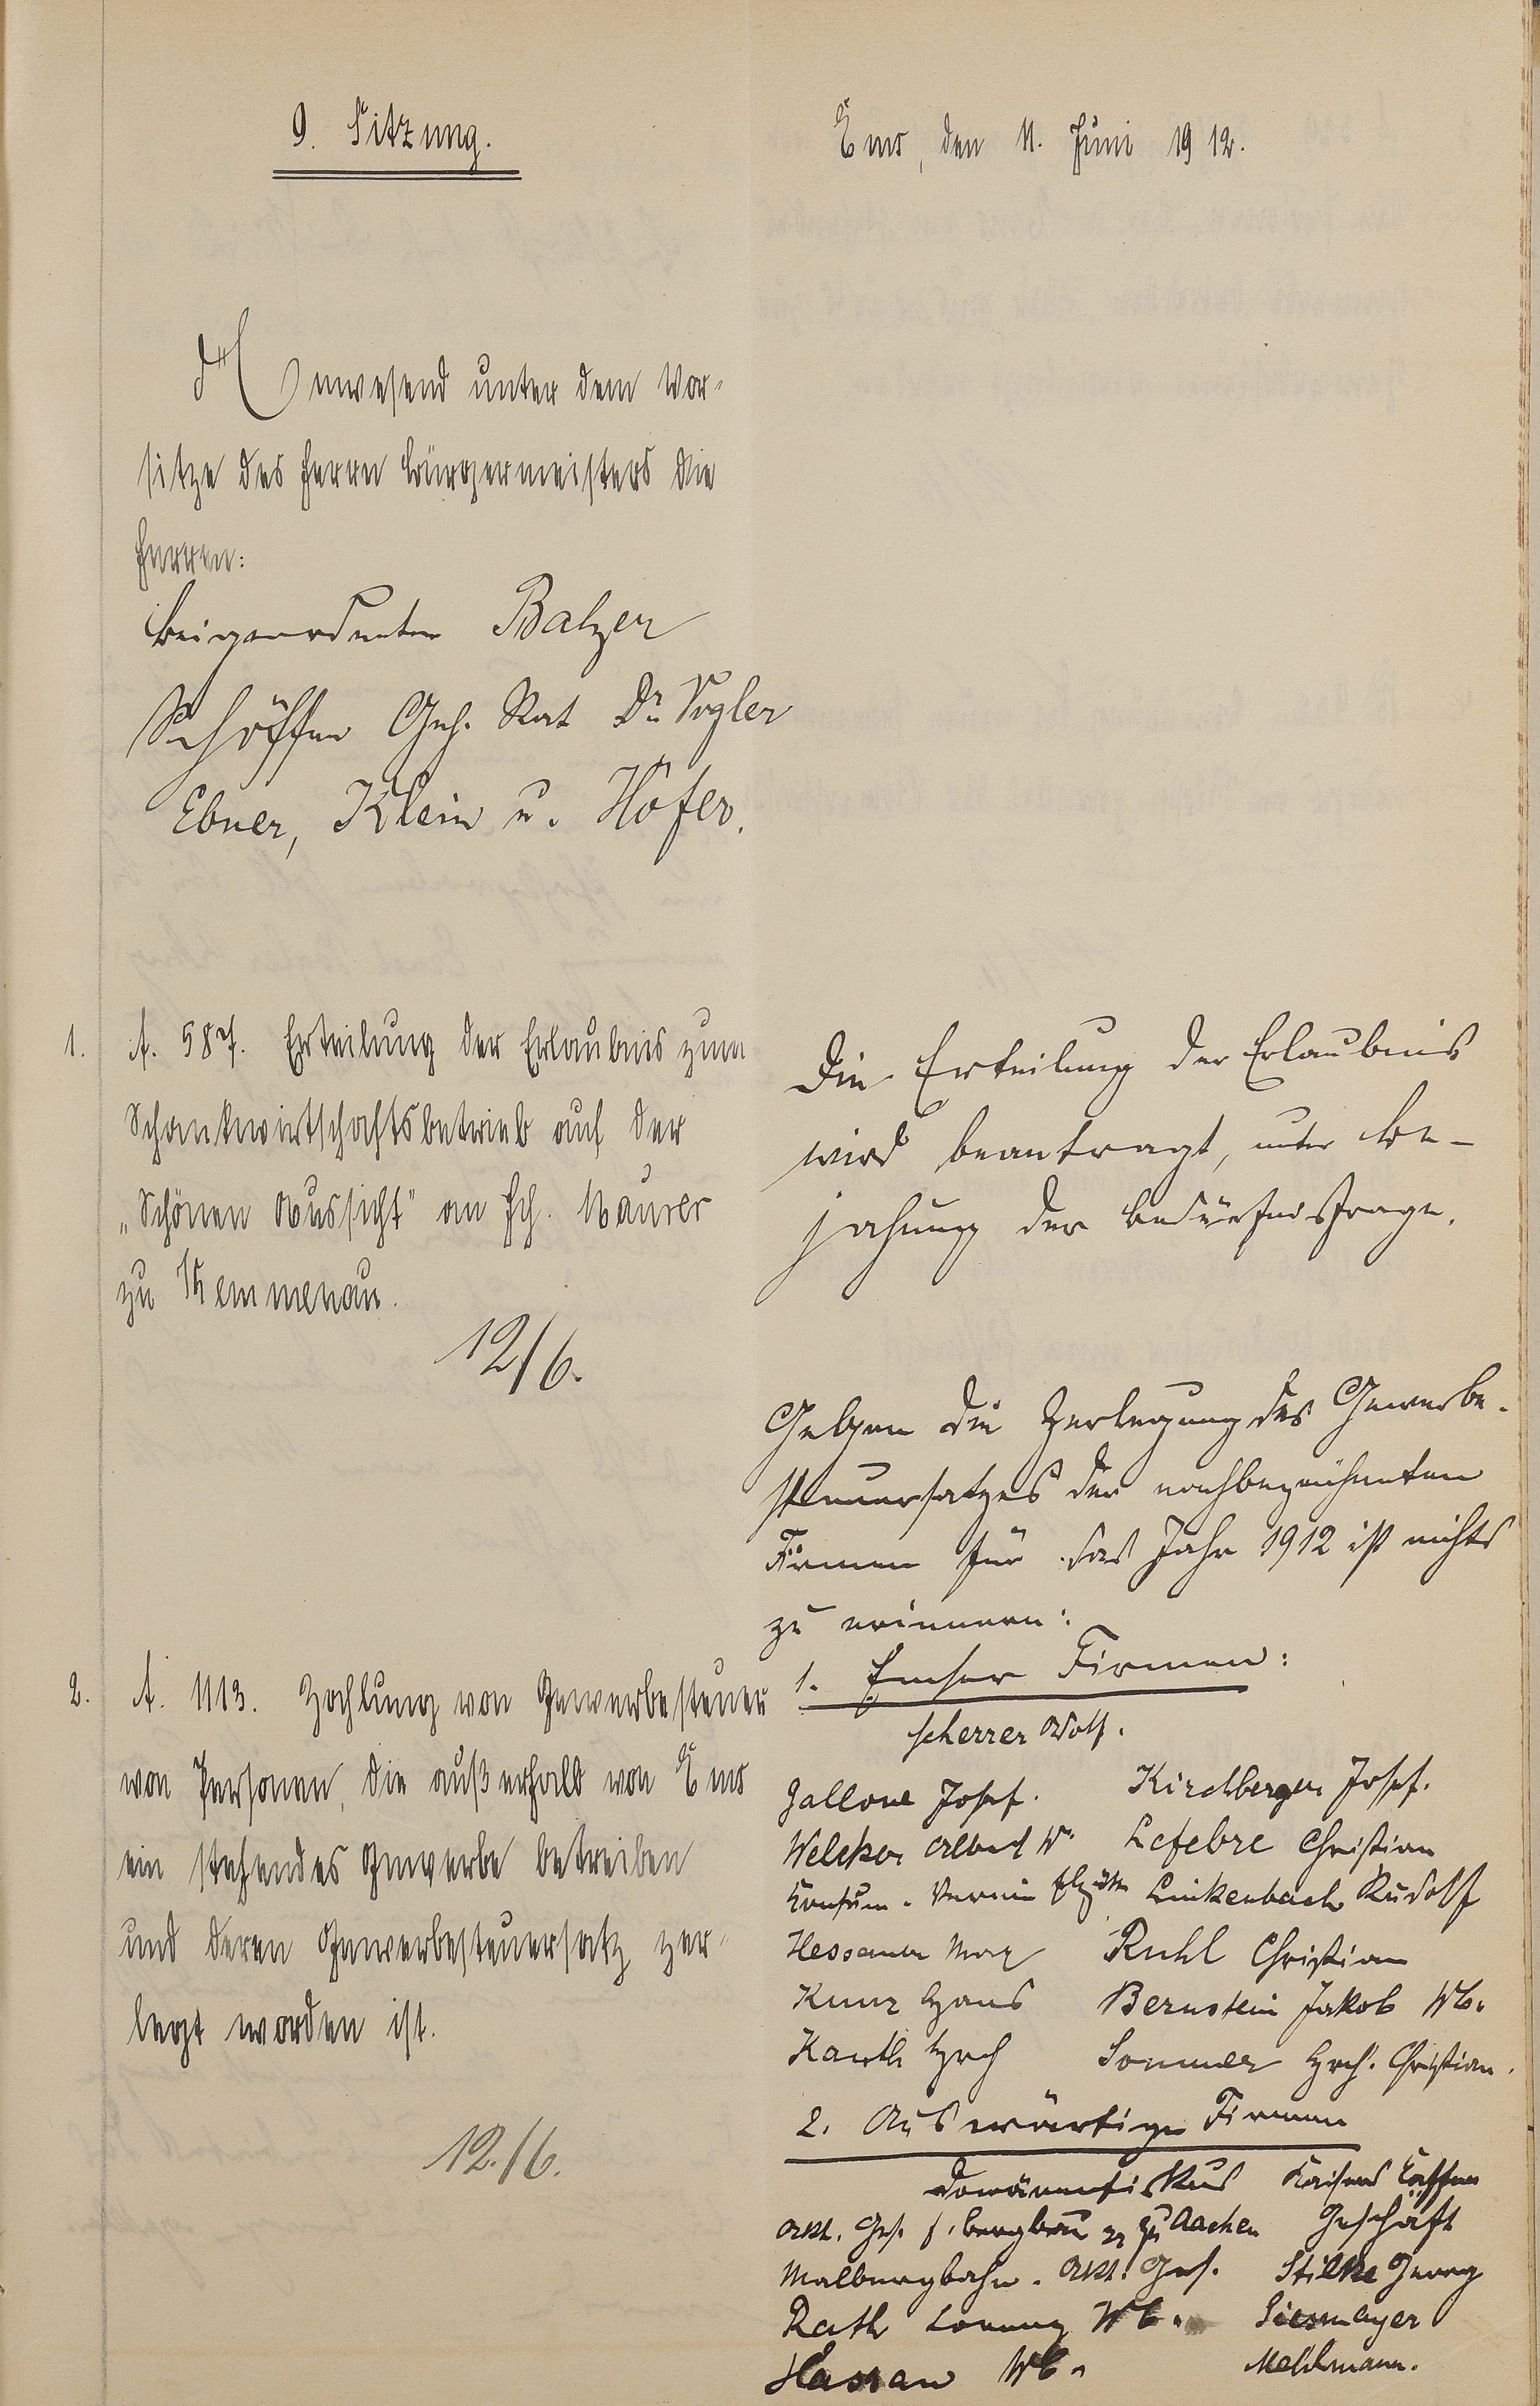 9. Sitzung.
Ems, den 11. Juni 1912.
Anwesend unter dem Vor-
sitze des Herrn Bürgermeisters die
Herren:
Beigeordneter Balzer
Schöffen Geh. Rat Dr. Vogler
Ebner, Klein u. Höfer.
1. A. 587. Erteilung der Erlaubnis zum
Schankwirtschaftsbetrieb auf der
„Schönen Aussicht" an Hch. Maurer
zu Kemmenau.
12/6.
Die Erteilung der Erlaubnis
wird beantragt, unter Be-
jahung der Bedürfnisfrage.
2. A. 1113. Zahlung von Gewerbesteuer
von Personen, die außerhalb von Ems
ein stehendes Gewerbe betreiben
und deren Gewerbesteuersatz zer-
legt worden ist.
12./6.
Gegen die Zerlegung des Gewerbe-
steuersatzes der nachbezeichneten
Firmen für das Jahr 1912 ist nichts
zu erinnern:
1. Emser Firmen:
Scherrer Adolf.
Gallone Josef.
Kirchberger Josef.
Welcker Albert W.
Lefebre Christian
Konsum-Verein
Linkenbach Rudolf
Hessemer Max
Ruhl Christian
Kunz Hans
Bernstein Jakob Wb.
Kauth Hrch
Sommer Hrch. Christian.
2. Auswärtige Firmen
Domänenfiskus
Kaisers Kaffee
Akt. Ges. f. Bergbau zu Aachen
Geschäft
Malbergbahn. Akt. Ges.
Stilke Georg
Rath Lorenz Wb.
Siesmayer
Wb.
Mehlmann.